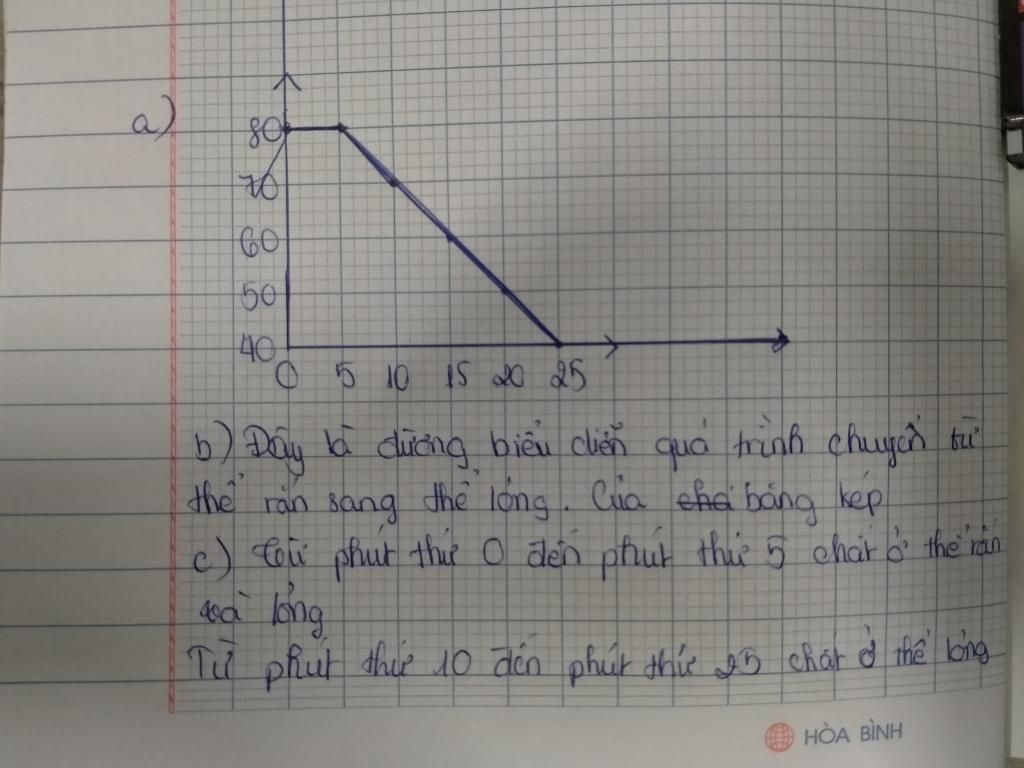 a)
80
70
60
50
40
0 5 10 15 20 25
b) Đây là đường biểu diễn quá trình chuyển từ
thể rắn sang thể lỏng. Của băng kép
c) Từ phút thứ 0 đến phút thứ 5 chất ở thể rắn
và lỏng
Từ phút thứ 10 đến phút thứ 25 chất ở thể lỏng
HÒA BÌNH